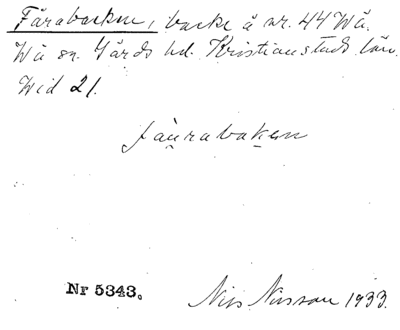 Fårabacken, backe å nr. 44 Wä.
Wä sn. Gärds hd. Kristianstads län.
Wid 21.
fåurabaken
Nr 5343.
Nils Nilsson 1933.